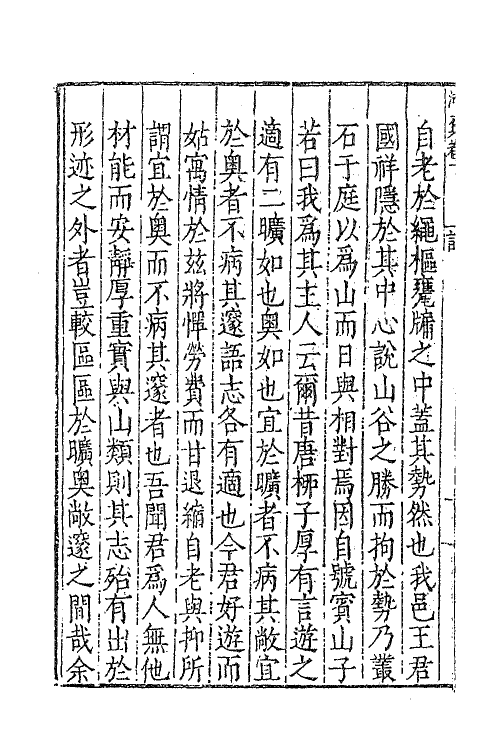 自老於繩樞甕牖之中蓋其勢然也我邑王君
國祥隱於其中心說山谷之勝而拘於勢乃叢
石于庭以爲山而日與相對焉因自號賓山子
若曰我爲其主人云爾昔唐柳子厚有言遊之
適有二曠如也奥如也宜於曠者不病其敞宜
於奥者不病其邃語志各有適也今君好遊而
姑寓情於玆將憚勞費而甘退縮自老與抑所
謂宜於奥而不病其邃者也吾聞君爲人無他
材能而安靜厚重實與山類則其志殆有出於
形迹之外者豈較區區於曠奥敞邃之間哉余